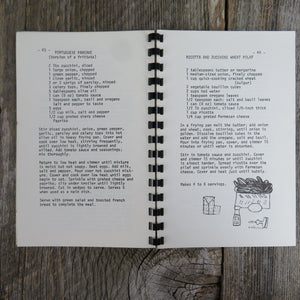 - 43 -
PORTUGUESE PANCAKE
(Version of a Frittata)
1 zucchini, sliced
1 large onion, chopped
1 green pepper, chopped
1 clove garlic, minced
2 or 3 sprigs of parsley, minced
1 celery tops, finely chopped
2 tablespoons olive oil
1 (8 oz) tomato sauce
1 teaspoon each, basil and oregano
Salt and pepper to taste
6 eggs
1/2 cup milk
1/2 cup grated cheese
Paprika
Stir sliced zucchini, onion, green pepper,
garlic, parsley and celery tops into the
olive oil in heavy frying pan. Cover and
cook over low heat, stirring frequently
until zucchini is lightly browned and
wilted. Add tomato sauce and seasonings;
mix thoroughly.
Return to low heat and simmer until mixture
is hot but not soupy. Beat eggs. Add milk,
salt and pepper. Pour over hot zucchini
mixture and cook over low heat until eggs
begin to set. Sprinkle with grated cheese and
paprika; stir under broiler until lightly
browned. Cut in wedges to serve. Serves 6
when used as a main dish.
Serve with green salad and toasted French
bread to complete the meal.
- 44 -
RICOTTA AND ZUCCHINI WHEAT PILAF
2 tablespoons butter or margarine
1 medium-sized onion, finely chopped
1 cup quick-cooking cracked wheat
(bulgur)
2 vegetable bouillon cubes
1 cup hot water
1/2 teaspoon oregano leaves
1/4 teaspoon each, salt and basil leaves
1 can (8 oz) tomato sauce
1 lb. zucchini, sliced 1/4-inch thick
1 cup ricotta
1/2 cup grated Parmesan cheese
In a frying pan melt the butter; add onion
and wheat, stirring until onion is
golden. Dissolve bouillon cubes in the
water and add the oregano, salt and basil.
Pour into frying pan, cover, and simmer 10
minutes or until water is absorbed.
Stir in tomato sauce and zucchini. Cover
and simmer 15 minutes or until zucchini is
almost tender. Spread ricotta over the
pilaf and sprinkle evenly with Parmesan
cheese. Cover and heat just until bubbly.
Makes 4 to 6 servings.